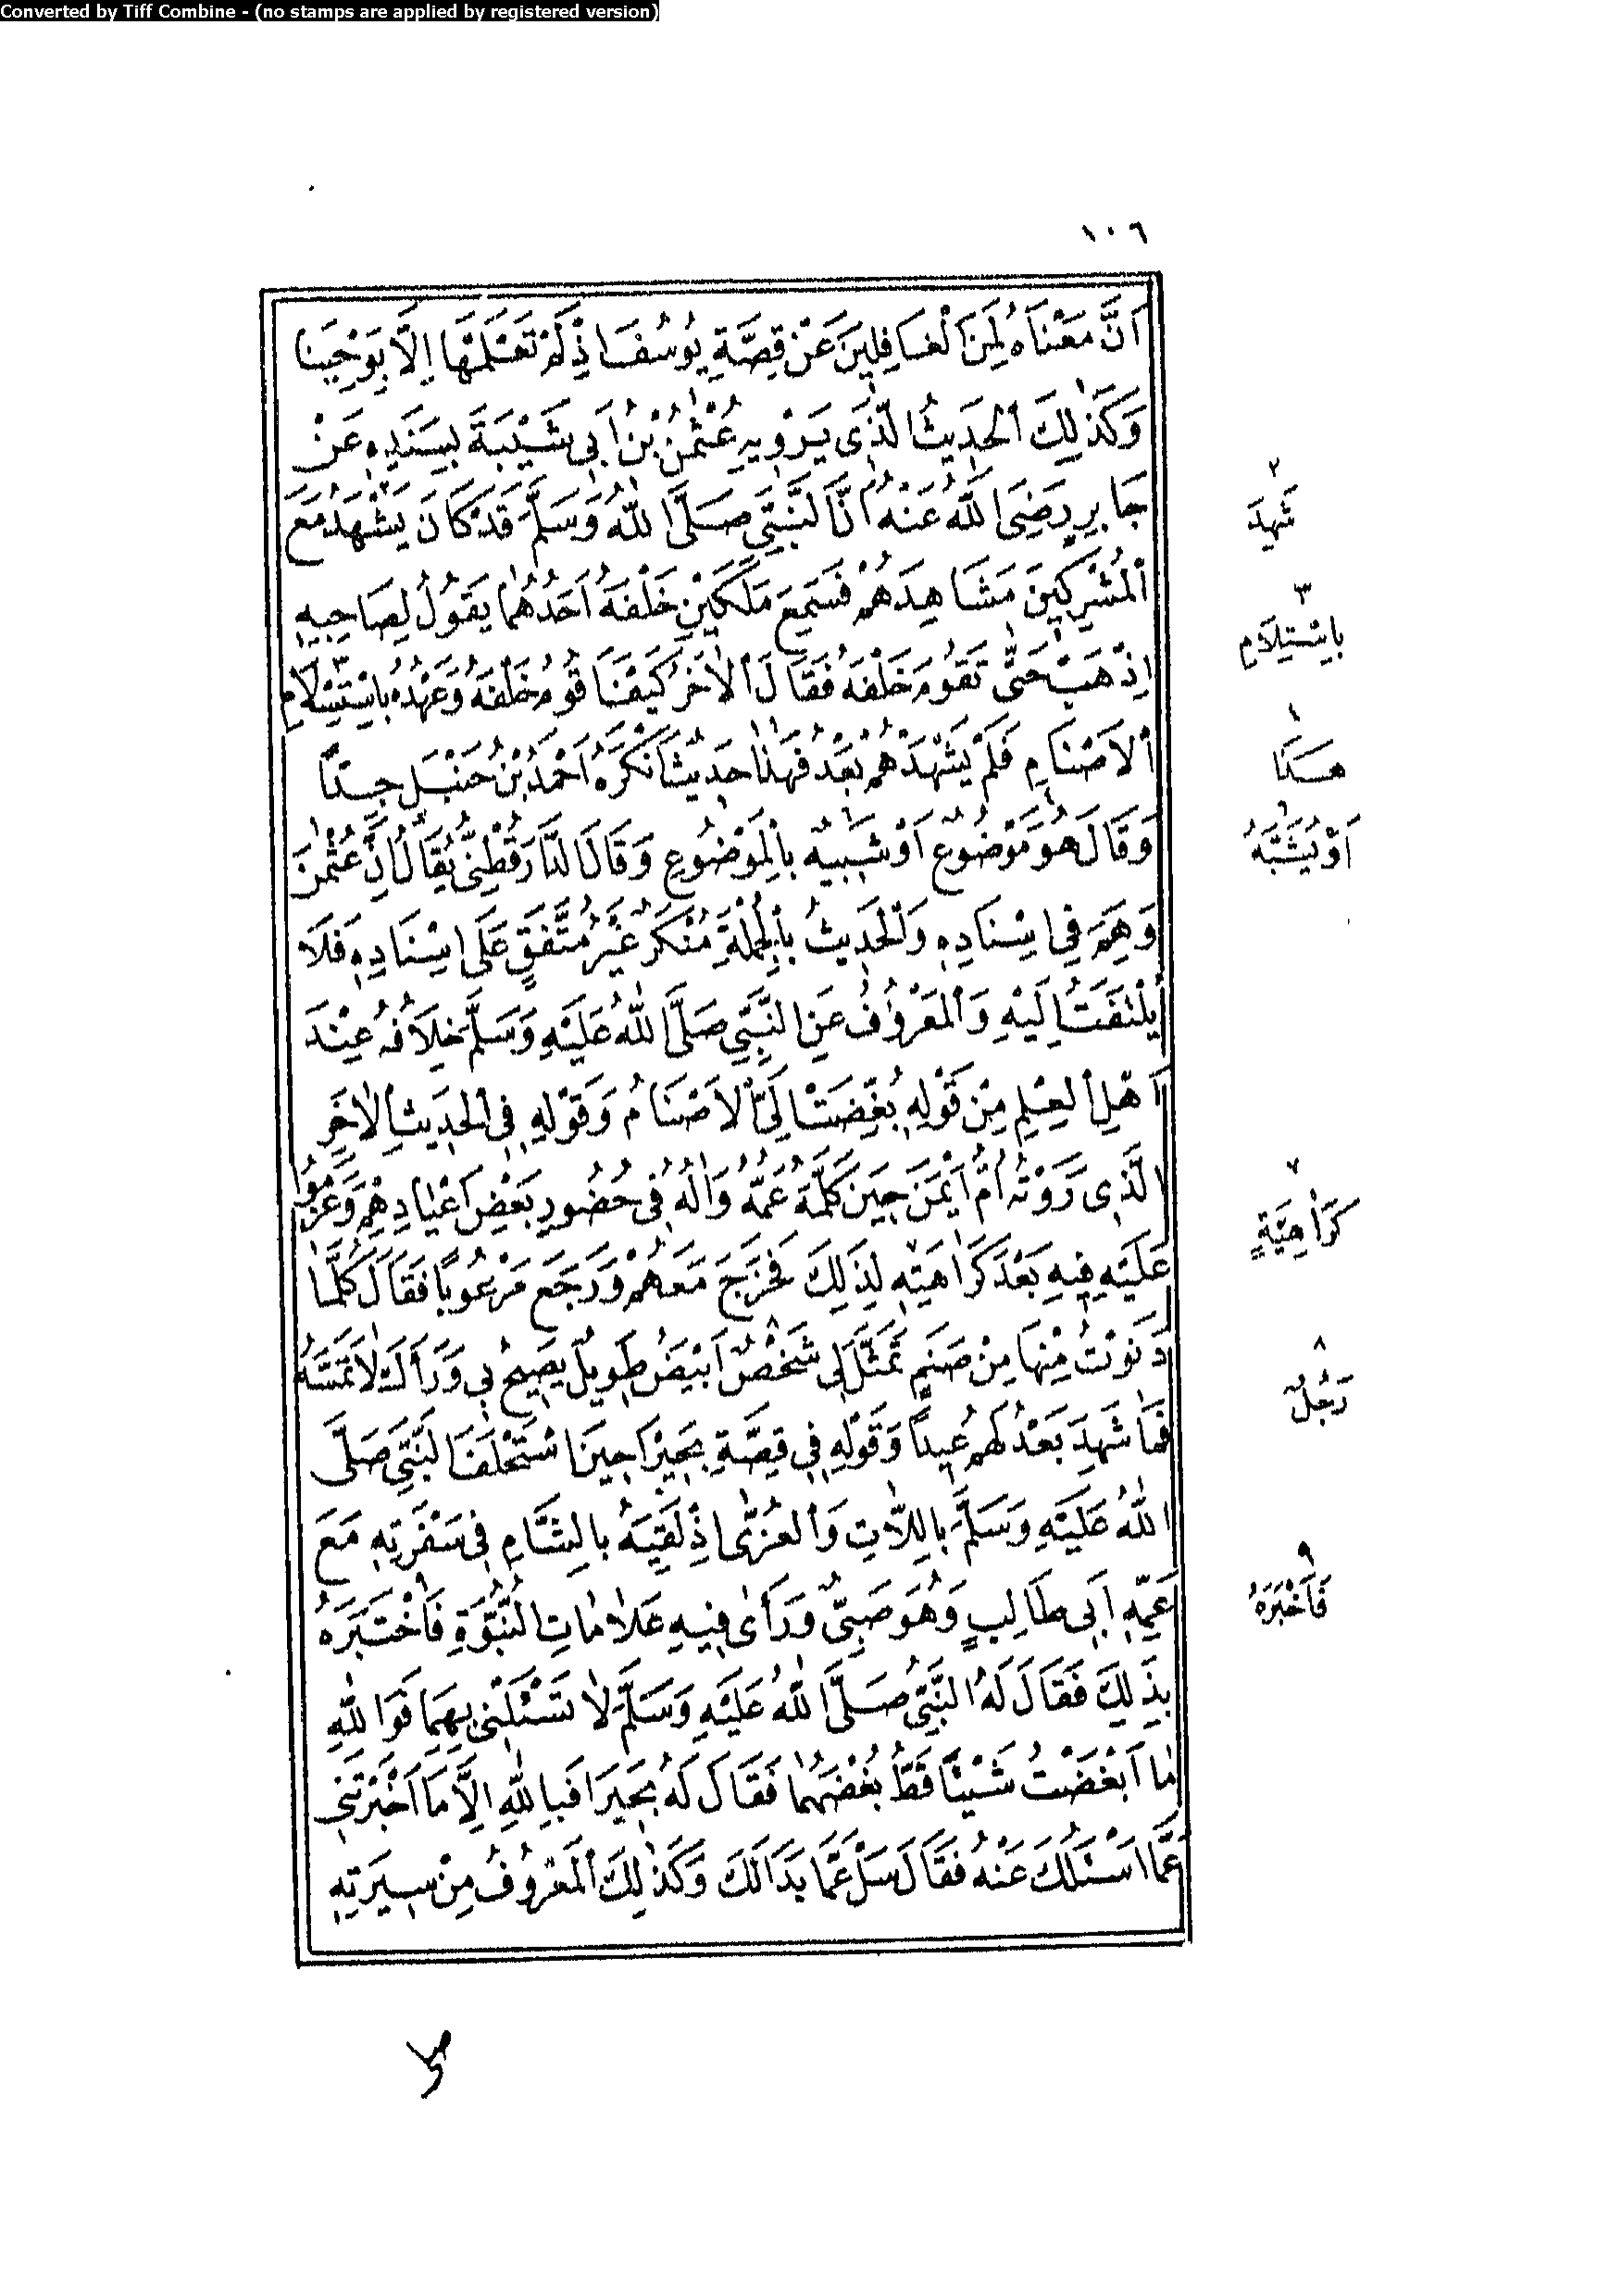 Converted by Tiff Combine - (no stamps are applied by registered version)
١٠٦
اَنَّ مَعْنَاهُ لَمِنَ الْغَافِلِينَ عَنْ قِصَّةِ يُوسُفَ اِذْ لَمْ تَعْلَمْهَا اِلَّا بِوَحْيِنَا
وَكَذٰلِكَ الْحَدِيثُ الَّذِى يَرْوِيهِ عُثْمٰنُ بْنُ اَبِى شَيْبَةَ بِسَنَدِهِ عَنْ
جَابِرٍ رَضِىَ اللهُ عَنْهُ اَنَّ النَّبِىَّ صَلَّى اللهُ وَسَلَّمَ قَدْ كَانَ يَشْهَدُ مَعَ
الْمُشْرِكِينَ مَشَاهِدَهُمْ فَسَمِعَ مَلَكَيْنِ خَلْفَهُ اَحَدُهُمَا يَقُولُ لِصَاحِبِهِ
اِذْهَبْ حَتّٰى تَقُومَ خَلْفَهُ فَقَالَ الْاٰخَرُ كَيْفَ اَقُومُ خَلْفَهُ وَعَهْدُهُ بِاسْتِسْلَامِ
الْاَصْنَامِ فَلَمْ يَشْهَدْهُمْ بَعْدُ فَهٰذَا حَدِيثٌ اَنْكَرَهُ اَحْمَدُ بْنُ حَنْبَلٍ جِدًّا
وَقَالَ هُوَ مَوْضُوعٌ اَوْ شَبِيهٌ بِالْمَوْضُوعِ وَقَالَ الدَّارَقُطْنِىُّ يُقَالُ اِنَّ عُثْمٰنَ
وَهِمَ فِى اِسْنَادِهِ وَالْحَدِيثُ بِالْجُمْلَةِ مُنْكَرٌ غَيْرُ مُتَّفَقٍ عَلَى اِسْنَادِهِ فَلَا
يُلْتَفَتُ اِلَيْهِ وَالْمَعْرُوفُ عَنِ النَّبِىِّ صَلَّى اللهُ عَلَيْهِ وَسَلَّمَ خِلَافُهُ عِنْدَ
اَهْلِ الْعِلْمِ مِنْ قَوْلِهِ بُغِّضَتْ اِلَىَّ الْاَصْنَامُ وَقَوْلِهِ فِى الْحَدِيثِ الْاٰخَرِ
الَّذِى رَوَتْهُ اُمُّ اَيْمَنَ حِينَ كَلَّمَهُ عَمُّهُ وَاٰلُهُ فِى حُضُورِ بَعْضِ اَعْيَادِهِمْ وَعَزَمُوا
عَلَيْهِ فِيهِ بَعْدَ كَرَاهَتِهِ لِذَلِكَ فَخَرَجَ مَعَهُمْ وَرَجَعَ مَرْعُوبًا فَقَالَ كُلَّمَا
دَنَوْتُ مِنْهَا مِنْ صَنَمٍ تَمَثَّلَ لِى شَخْصٌ اَبْيَضُ طَوِيلٌ يَصِيحُ بِى وَرَاءَكَ لَا تَمَسَّهُ
فَمَا شَهِدَ بَعْدُ لَهُمْ عِيدًا وَقَوْلِهِ فِى قِصَّةِ بَحِيرَا حِينَ اسْتَحْلَفَ النَّبِىَّ صَلَّى
اللهُ عَلَيْهِ وَسَلَّمَ بِاللَّاتِ وَالْعُزّٰى اِذْ لَقِيَهُ بِالشَّامِ فِى سَفْرَتِهِ مَعَ
عَمِّهِ اَبِى طَالِبٍ وَهُوَ صَبِىٌّ وَرَأَى فِيهِ عَلَامَاتِ النُّبُوَّةِ فَاخْتَبَرَهُ
بِذَلِكَ فَقَالَ لَهُ النَّبِىُّ صَلَّى اللهُ عَلَيْهِ وَسَلَّمَ لَا تَسْئَلْنِى بِهِمَا فَوَاللهِ
مَا اَبْغَضْتُ شَيْئًا قَطُّ بُغْضَهُمَا فَقَالَ لَهُ بَحِيرَا فَبِاللهِ اِلَّا مَا اَخْبَرْتَنِى
عَمَّا اَسْئَلُكَ عَنْهُ فَقَالَ سَلْ عَمَّا بَدَا لَكَ وَكَذٰلِكَ الْمَعْرُوفُ مِنْ سِيرَتِهِ
٢
شَهِدَ
٣
بِاسْتِلَامِ
١
هٰذَا
٦
اَوْ يُشَبَّهُ
٧
كَرَاهِيَّةٍ
٨
رَجُلٌ
٩
فَاَخْبَرَهُ